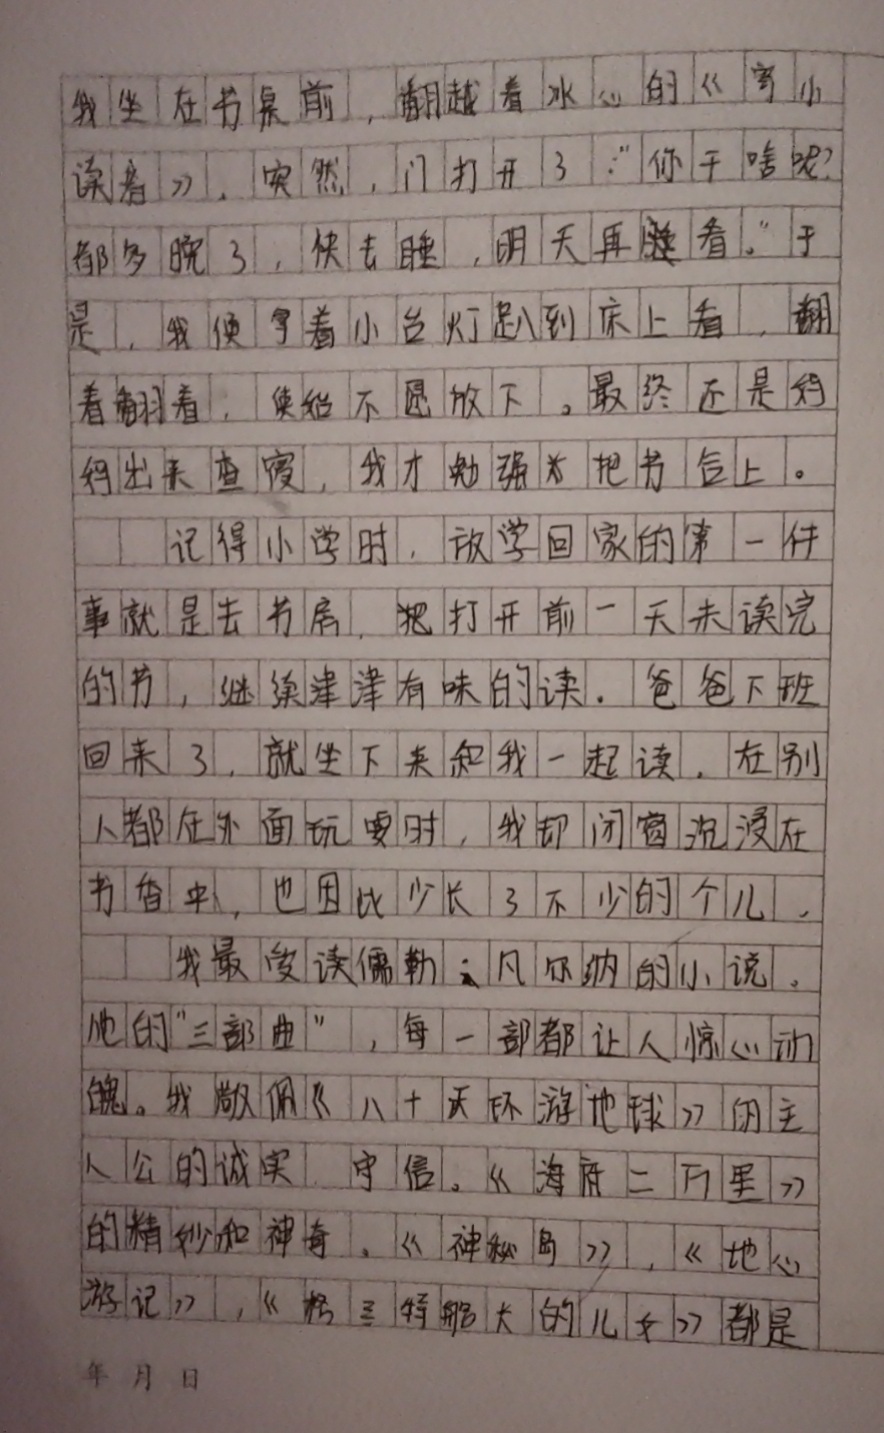 我坐在书桌前，翻越着冰心的《寄小
读者》。突然，门打开了："你干啥呢？
都多晚了，快去睡，明天再看。"于
是，我便拿着小台灯趴到床上看，翻
着翻着，使终不愿放下。最终还是妈
妈出来查寝，我才勉强把书合上。
记得小学时，放学回家的第一件
事就是去书房，把打开前一天未读完
的书，继续津津有味的读。爸爸下班
回来了，就坐下来和我一起读。在别
人都在外面玩耍时，我却闭窗沉浸在
书香中，也因此少长了不少的个儿。
我最爱读儒勒·凡尔纳的小说。
他的"三部曲"，每一部都让人惊心动
魄。我敬佩《八十天环游地球》的主
人公的诚实 守信。《海底二万里》
的精妙和神奇。《神秘岛》，《地心
游记》，《格兰特船长的儿女》都是
年 月 日